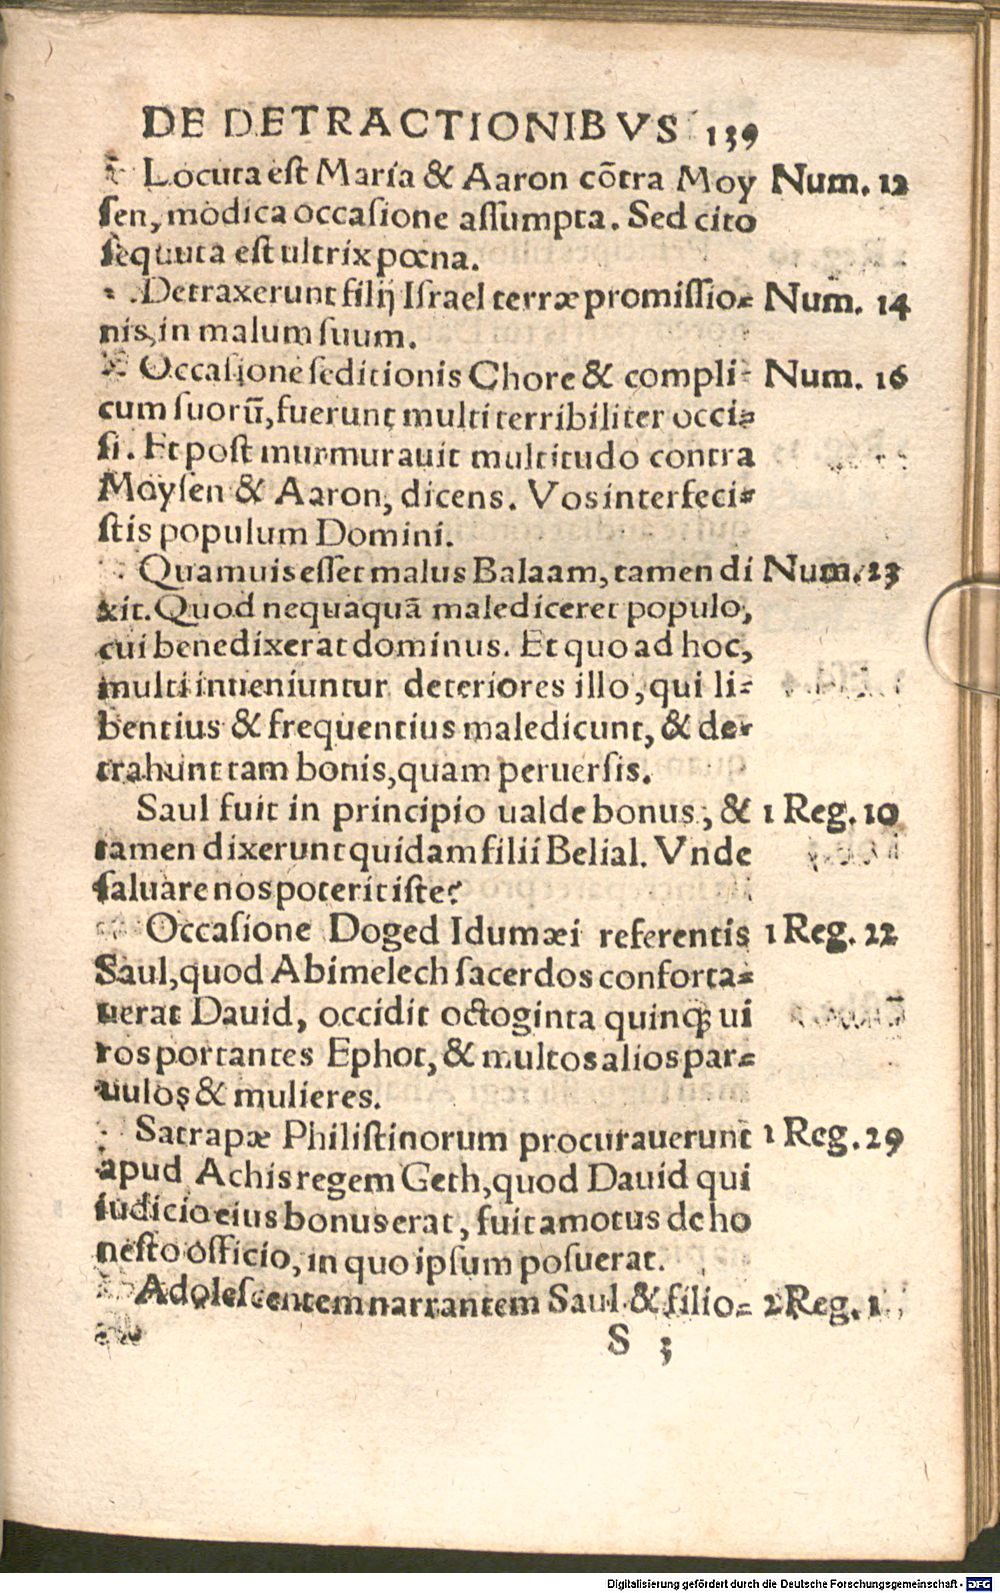 DE DETRACTIONIBVS 139
Locuta est Maria & Aaron cõtra Moy Num. 12
sen, modica occasione assumpta. Sed cito
sequuta est ultrix pœna.
Detraxerunt filij Israel terræ promissio= Num. 14
nis, in malum suum.
Occasione seditionis Chore & compli= Num. 16
cum suorũ, fuerunt multi terribiliter occi=
si. Et post murmurauit multitudo contra
Moysen & Aaron, dicens. Vos interfeci=
stis populum Domini.
Quamuis esset malus Balaam, tamen di Num. 23
xit. Quod nequaquã malediceret populo,
cui benedixerat dominus. Et quo ad hoc,
multi inueniuntur deteriores illo, qui li=
bentius & frequentius maledicunt, & de=
trahunt tam bonis, quam peruersis.
Saul fuit in principio ualde bonus, & 1 Reg. 10
tamen dixerunt quidam filii Belial. Vnde
saluare nos poterit iste?
Occasione Doged Idumæi referentis 1 Reg. 22
Saul, quod Abimelech sacerdos conforta=
uerat Dauid, occidit octoginta quinq; ui
ros portantes Ephot, & multos alios par=
uulos & mulieres.
Satrapæ Philistinorum procurauerunt 1 Reg. 29
apud Achis regem Geth, quod Dauid qui
iudicio eius bonus erat, fuit amotus de ho
nesto officio, in quo ipsum posuerat.
Adolescentem narrantem Saul & filio= 2 Reg. 1
S 3
Digitalisierung gefördert durch die Deutsche Forschungsgemeinschaft - DFG